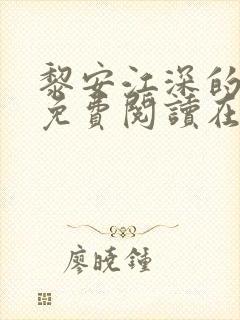 黎安江深的
免費閱讀在
廖曉鍾